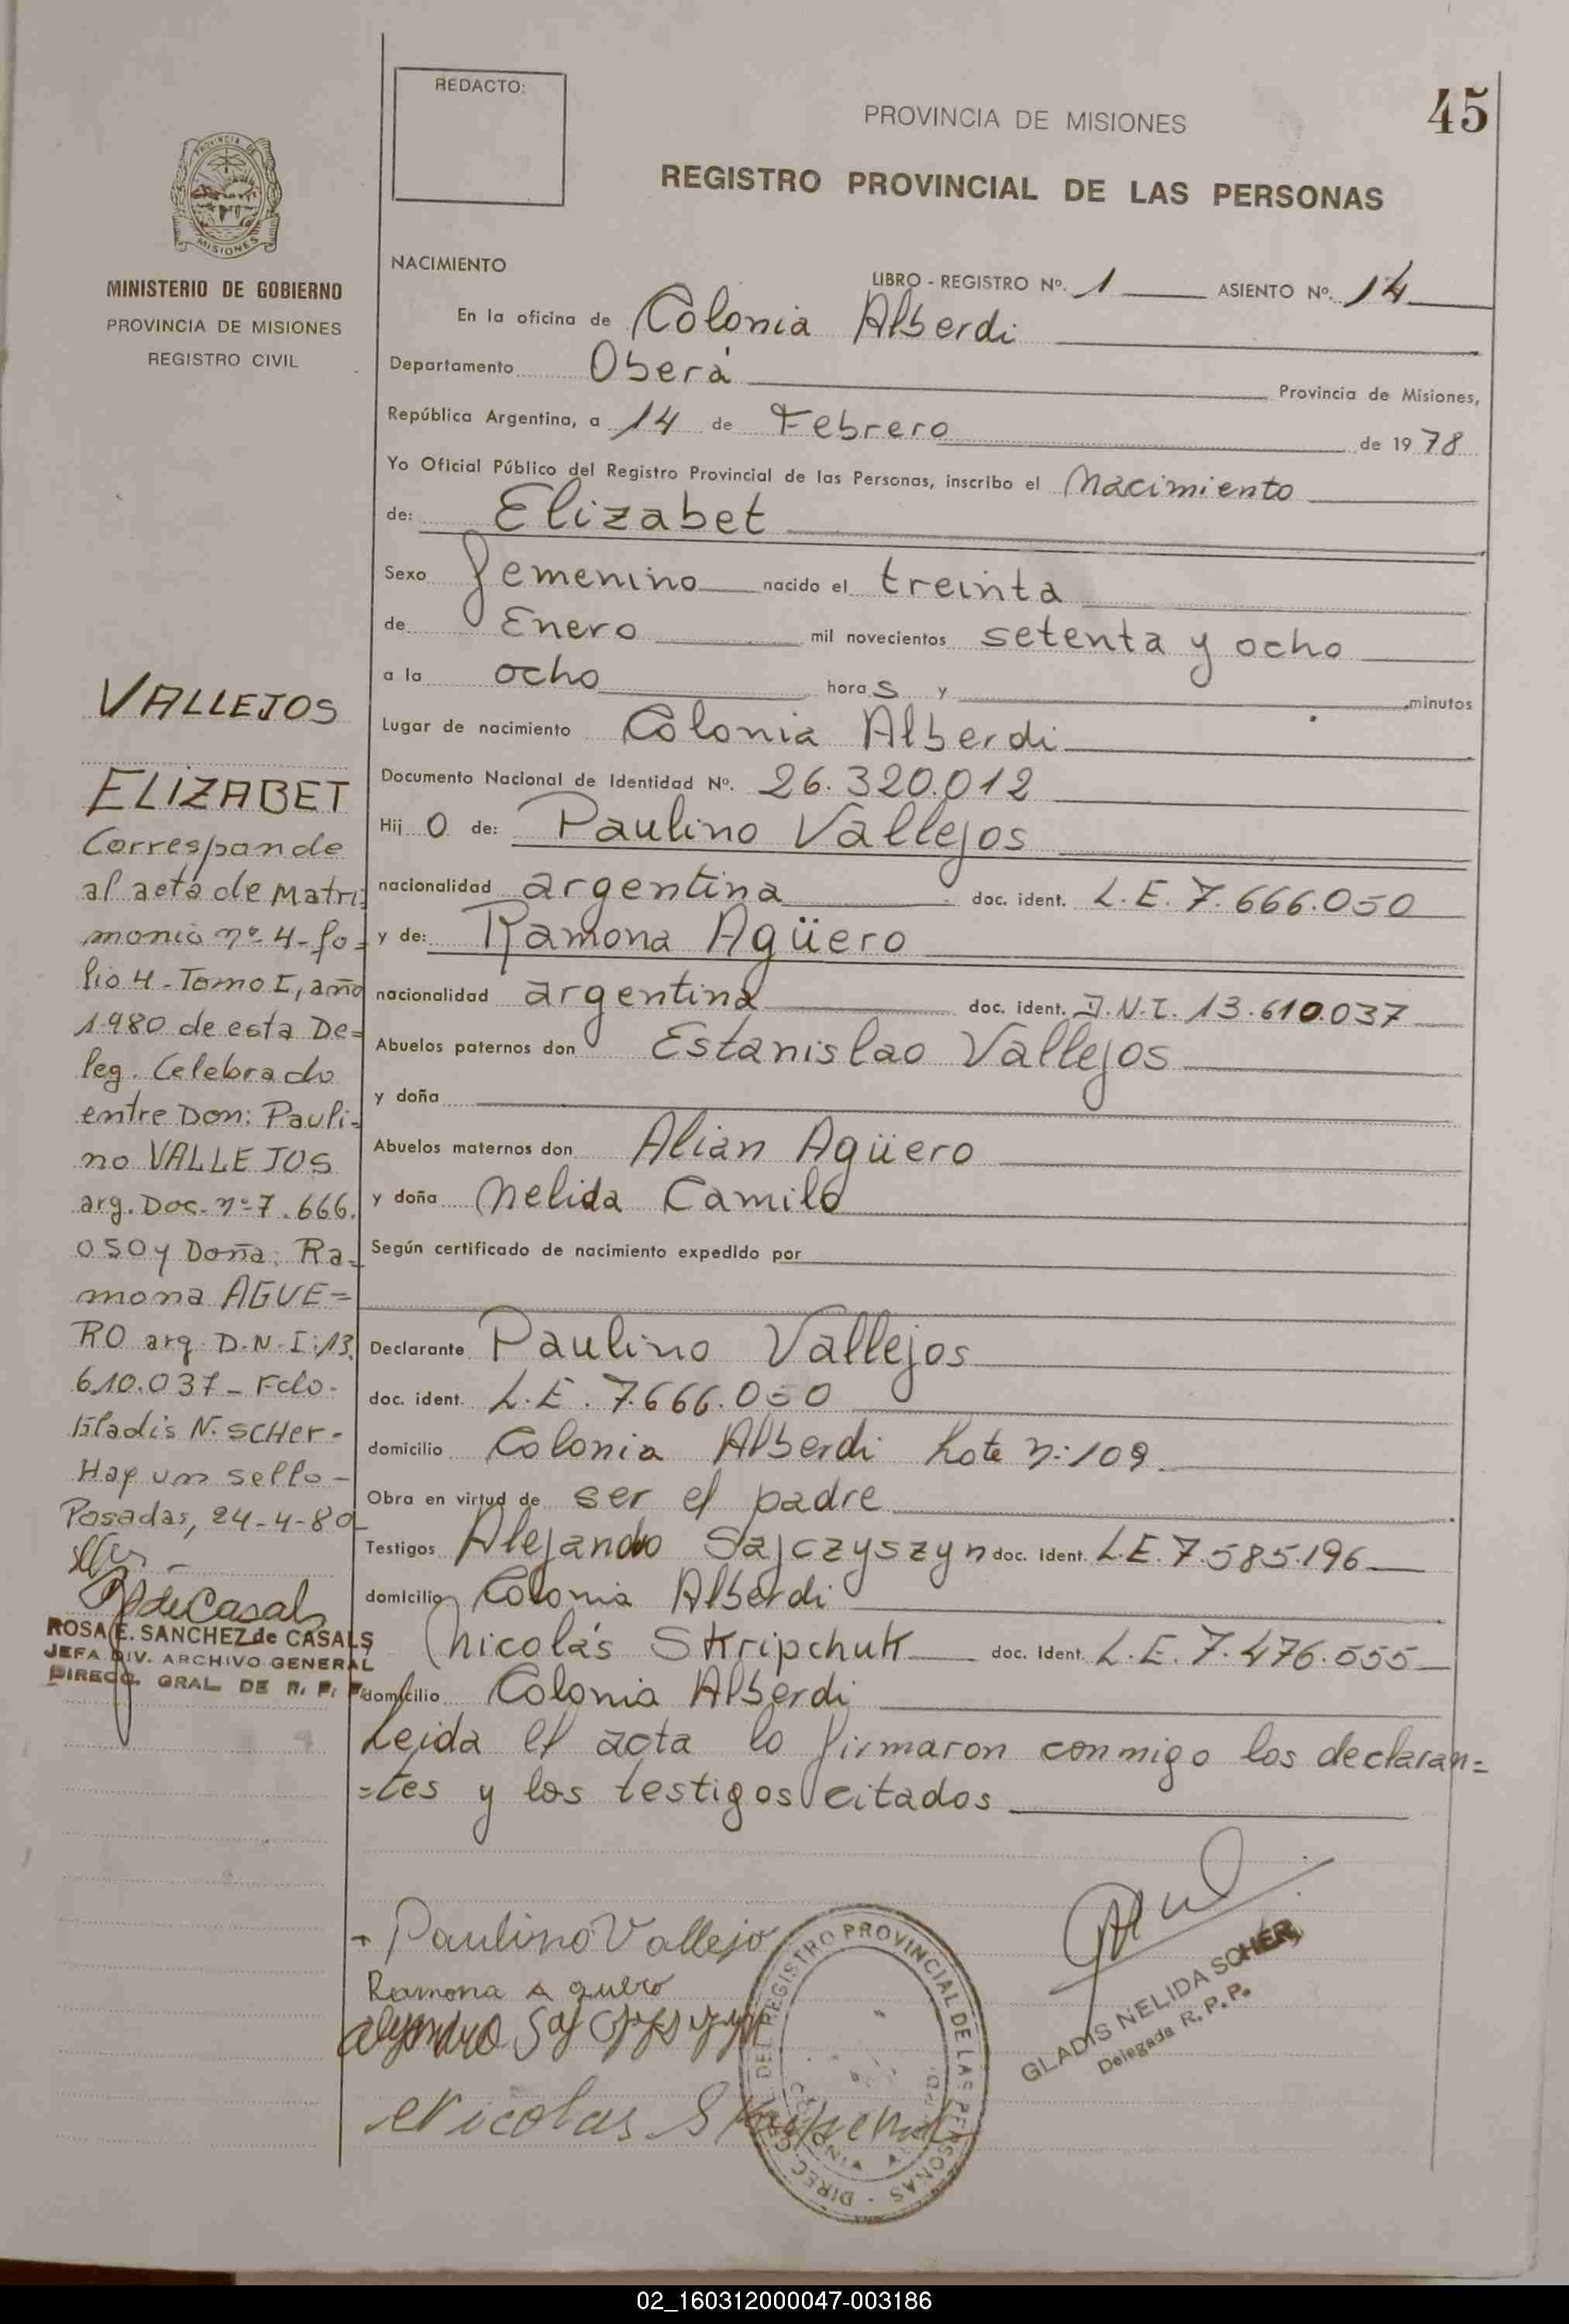 REDACTO:
45
PROVINCIA DE MISIONES
REGISTRO PROVINCIAL DE LAS PERSONAS
PROVINCIA DE
MISIONES
MINISTERIO DE GOBIERNO
PROVINCIA DE MISIONES
REGISTRO CIVIL
NACIMIENTO
LIBRO - REGISTRO Nº. 1 ASIENTO Nº. 14
En la oficina de Colonia Alberdi
Departamento Oberá Provincia de Misiones,
República Argentina, a 14 de Febrero de 1978
Yo Oficial Público del Registro Provincial de las Personas, inscribo el Nacimiento
de: Elizabet
Sexo femenino nacido el treinta
de Enero mil novecientos setenta y ocho
a la ocho horas y minutos
Lugar de nacimiento Colonia Alberdi
Documento Nacional de Identidad Nº. 26.320.012
Hij o de: Paulino Vallejos
nacionalidad argentina doc. ident. L.E. 7.666.050
y de: Ramona Agüero
nacionalidad argentina doc. ident. D.N.I. 13.610.037
Abuelos paternos don Estanislao Vallejos
y doña
Abuelos maternos don Alian Agüero
y doña Nelida Camilo
Según certificado de nacimiento expedido por
Declarante Paulino Vallejos
doc. ident. L.E. 7.666.050
domicilio Colonia Alberdi Lote n: 109
Obra en virtud de ser el padre
Testigos Alejandro Sajczyszyn doc. Ident. L.E. 7.585.196
domicilio Colonia Alberdi
Nicolás Skripchuk doc. Ident. L.E. 7.476.555
domicilio Colonia Alberdi
Leida el acta lo firmaron conmigo los declaran=
=tes y los testigos citados
VALLEJOS
ELIZABET
Corresponde
al acta de Matri=
monio nº 4- fo=
lio 4- Tomo I, año
1980 de esta De=
leg. Celebrado
entre Don: Pauli=
no VALLEJOS
arg. Doc. nº 7.666.
050 y Doña: Ra=
mona AGUE=
RO arg. D.N.I: 13.
610.037- Fdo.
Gladis N. SCHer-
Hay un sello-
Posadas, 24-4-80
RSdeCasals
ROSA E. SANCHEZ de CASALS
JEFA DIV. ARCHIVO GENERAL
DIRECC. GRAL. DE R. P. P.
Paulino Vallejo
Ramona Aguero
alejandro Sajczyszyn
Nicolas Skripchuk
DIREC. GRAL. DEL REGISTRO PROVINCIAL DE LAS PERSONAS
GLADIS NELIDA SCHER
Delegada R. P. P.
02_160312000047-003186